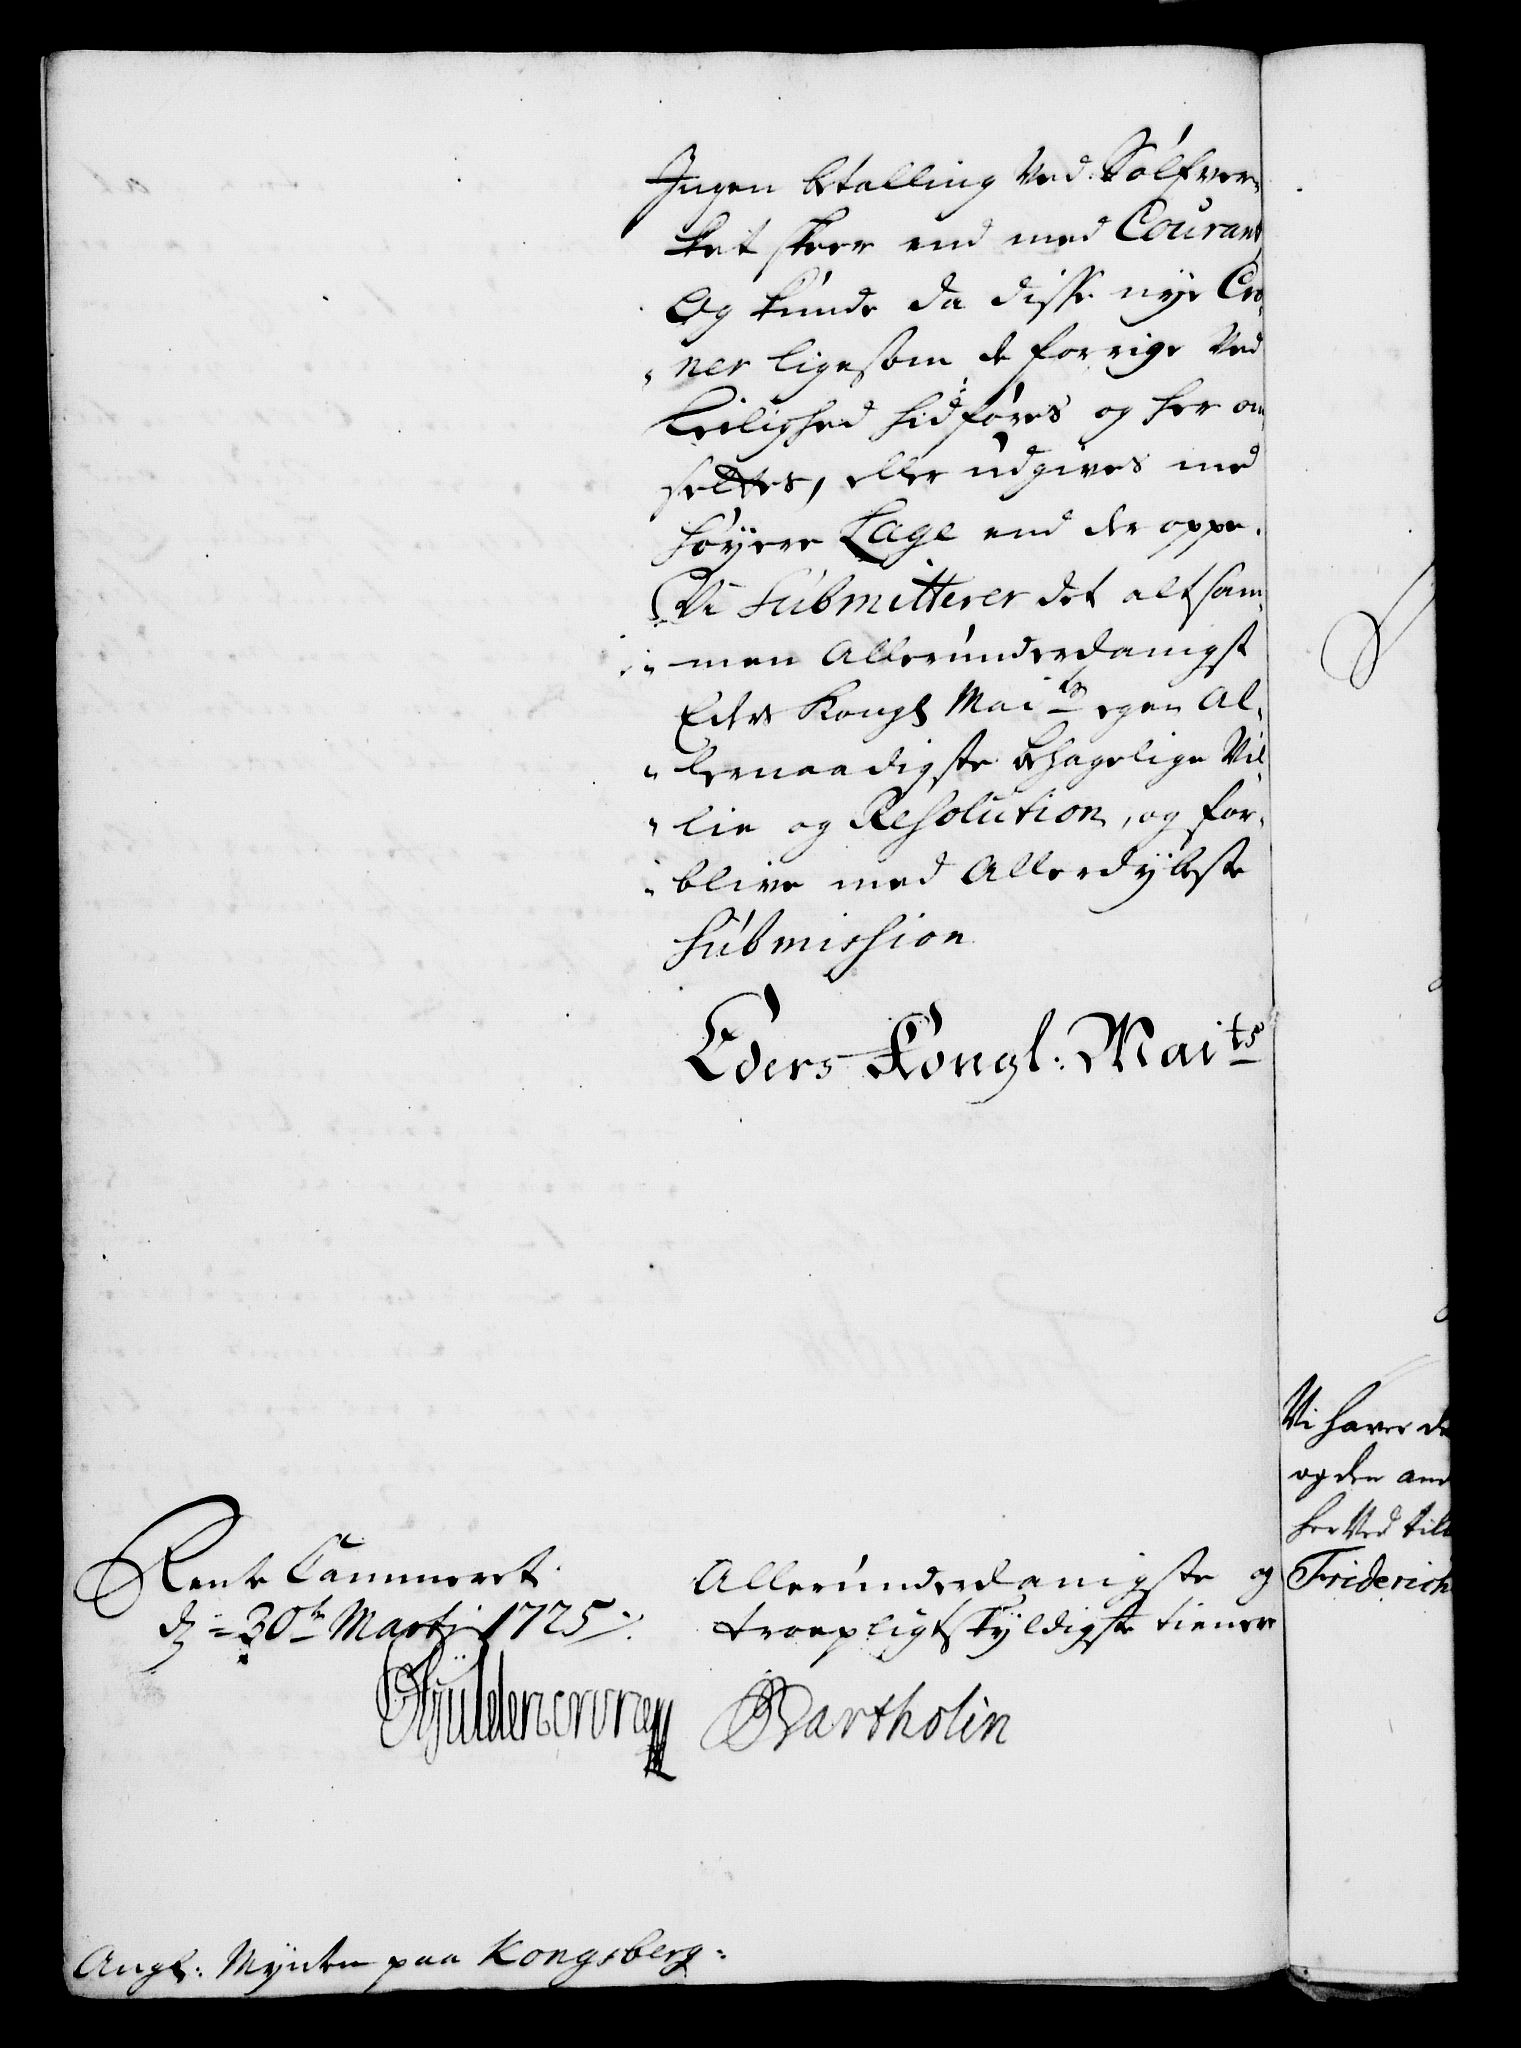 Ingen betalling ved Sølfver¬
ket skeer end med Courant,
Og kunde da disse nye Cro¬
ner ligesom de forrige ved
Leilighed hidføres og her om
settes, eller udgives med
høyere Lage end der oppe.
Vi Submitterer det altsam¬
men Allerunderdanigst
Eders Kongl Maits egen Al¬
lernaadigste behagelige Vil¬
lie og Resolution, og for¬
blive med Allerdybeste
Submission
Eders Kongl: Maits
Rente Cammeret
dj 30te Martij 1725
Allerunderdanigste og
troepligtskyldigste tienere
Gyldencrone
Bartholin
Angl: Mynten paa Kongsberg:
Vi haver de
og den and
her ved till
Friderich